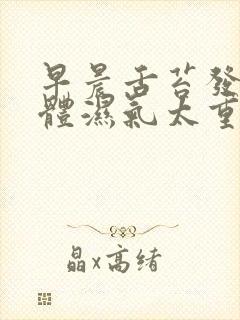 早晨舌苔發
體濕氣太重
晶x高緒